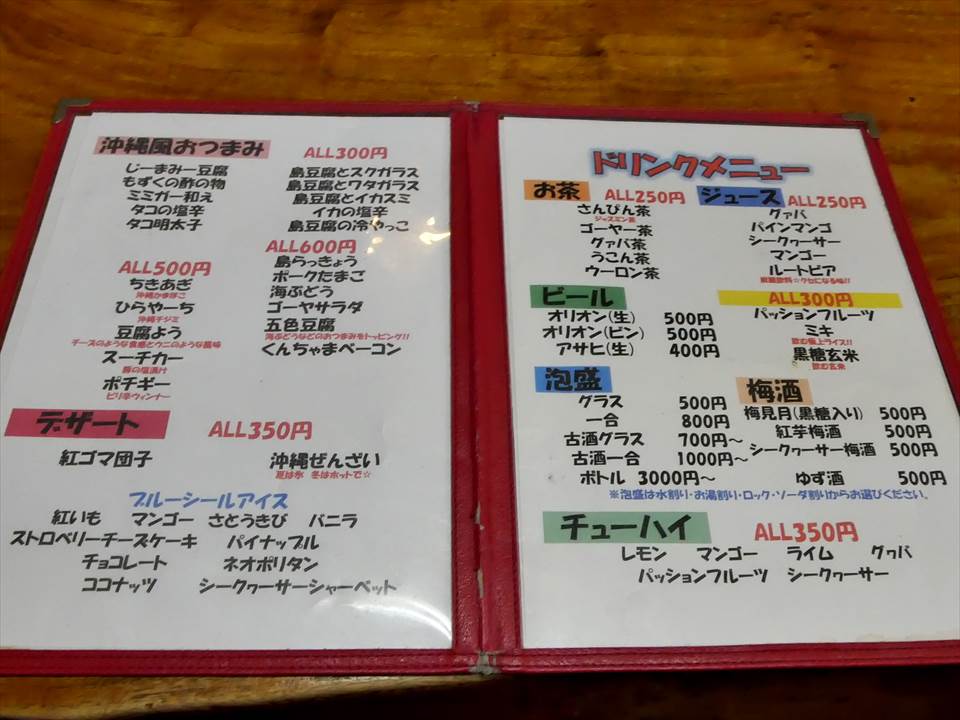 沖縄風おつまみ
ALL300円
じーまみー豆腐
もずくの酢の物
ミミガー和え
タコの塩辛
タコ明太子
島豆腐とスクガラス
島豆腐とワタガラス
島豆腐とイカスミ
イカの塩辛
島豆腐の冷やっこ
ALL500円
ちきあぎ
沖縄かまぼこ
ひらやーち
沖縄チジミ
豆腐よう
チーズのような食感とウニのような風味
スーチカー
豚の塩漬け
ポチギー
ピリ辛ウィンナー
ALL600円
島らっきょう
ポークたまご
海ぶどう
ゴーヤサラダ
五色豆腐
海ぶどうなどのおつまみをトッピング!!
くんちゃまベーコン
デザート
ALL350円
紅ゴマ団子
沖縄ぜんざい
夏は氷 冬はホットで☆
ブルーシールアイス
紅いも マンゴー さとうきび バニラ
ストロベリーチーズケーキ パイナップル
チョコレート ネオポリタン
ココナッツ シークヮーサーシャーベット
ドリンクメニュー
お茶 ALL250円
さんぴん茶
ジャスミン茶
ゴーヤー茶
グァバ茶
うこん茶
ウーロン茶
ジュース ALL250円
グァバ
パインマンゴ
シークヮーサー
マンゴー
ルートビア
炭酸飲料☆クセになる味!!
ALL300円
パッションフルーツ
ミキ
飲む極上ライス!!
黒糖玄米
飲む玄米
ビール
オリオン(生) 500円
オリオン(ビン) 500円
アサヒ(生) 400円
泡盛
グラス 500円
一合 800円
古酒グラス 700円～
古酒一合 1000円～
ボトル 3000円～
梅酒
梅見月(黒糖入り) 500円
紅芋梅酒 500円
シークヮーサー梅酒 500円
ゆず酒 500円
※泡盛は水割り・お湯割り・ロック・ソーダ割りからお選びください。
チューハイ ALL350円
レモン マンゴー ライム グァバ
パッションフルーツ シークヮーサー